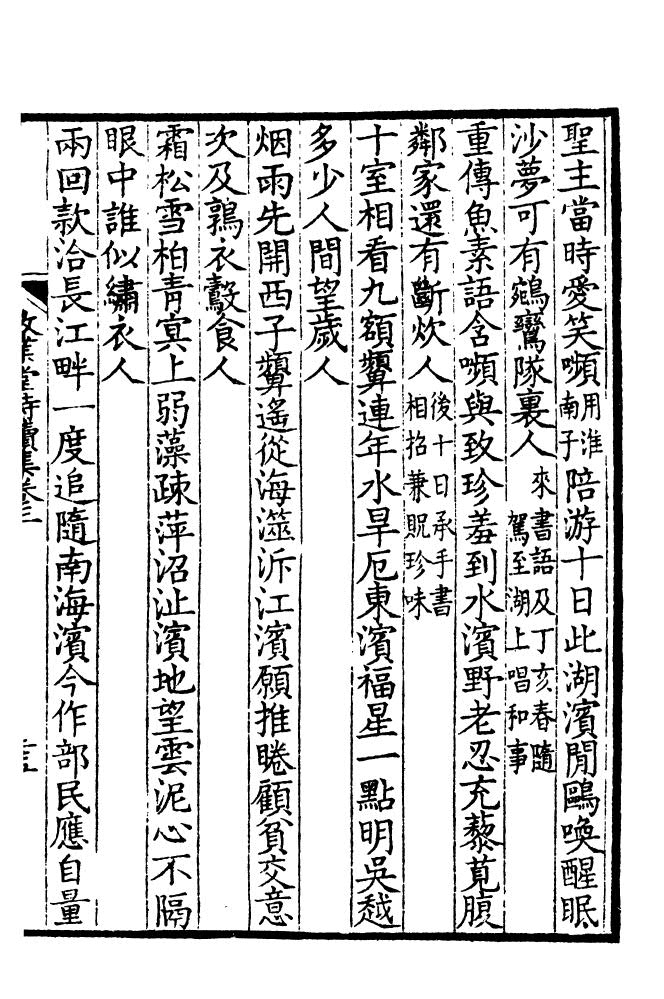 聖主當時愛笑嚬用淮南子陪游十日此湖濱閒鷗喚醒眠
沙夢可有鵷鸞隊裏人來書語及丁亥春隨駕至湖上唱和事
重傳魚素語含嚬與致珍羞到水濱野老忍充藜莧腹
鄰家還有斷炊人後十日承手書相招兼貺珍味
十室相看九額顰連年水旱厄東濱福星一點明吳越
多少人間望歲人
烟雨先開西子顰遙從海澨泝江濱願推睠顧貧交意
次及鶉衣鷇食人
霜松雪柏青冥上弱藻疎萍沼沚濱地望雲泥心不隔
眼中誰似繡衣人
兩回款洽長江畔一度追隨南海濱今作部民應自量
敬業堂詩續集卷三